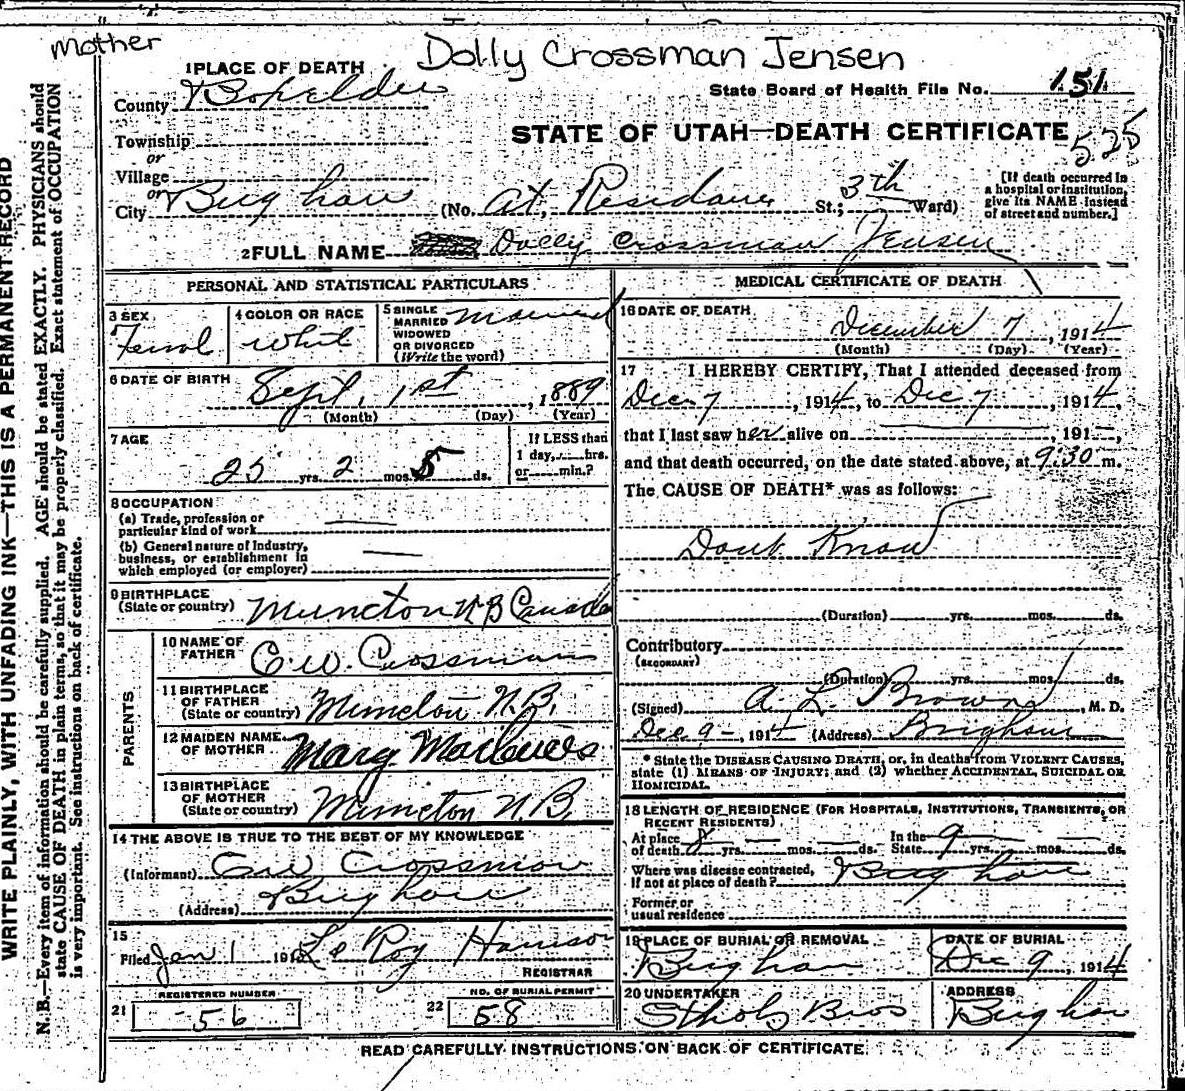 Mother
Dolly Crossman Jensen
1 PLACE OF DEATH
County Boxelder
State Board of Health File No. 151
STATE OF UTAH—DEATH CERTIFICATE
525
Township
or
Village
or
City Brigham (No. at Residance St.; 3th Ward)
[If death occurred in
a hospital or institution,
give its NAME instead
of street and number.]
2 FULL NAME Dolly Crossman Jensen
PERSONAL AND STATISTICAL PARTICULARS
3 SEX
Femal
4 COLOR OR RACE
whit
5 SINGLE
MARRIED
WIDOWED
OR DIVORCED
(Write the word)
Married
6 DATE OF BIRTH
Sept. 1st, 1889
(Month) (Day) (Year)
7 AGE
25 yrs. 2 mos. 5 ds.
If LESS than
1 day, hrs.
or min.?
8 OCCUPATION
(a) Trade, profession or
particular kind of work
(b) General nature of Industry,
business, or establishment in
which employed (or employer)
9 BIRTHPLACE
(State or country) Muncton N B Canada
PARENTS
10 NAME OF
FATHER C. W. Crossman
11 BIRTHPLACE
OF FATHER
(State or country) Muncton N.B.
12 MAIDEN NAME
OF MOTHER Mary
13 BIRTHPLACE
OF MOTHER
(State or country) Muncton N.B.
14 THE ABOVE IS TRUE TO THE BEST OF MY KNOWLEDGE
(Informant) C W Crossman
(Address) Brigham
15
Filed Jan 1 191 Le Roy Harrison
REGISTRAR
REGISTERED NUMBER
21 56
NO. OF BURIAL PERMIT
22 58
MEDICAL CERTIFICATE OF DEATH
16 DATE OF DEATH
December 7, 1914
(Month) (Day) (Year)
17 I HEREBY CERTIFY, That I attended deceased from
Dec 7, 1914, to Dec 7, 1914,
that I last saw her alive on , 191—,
and that death occurred, on the date stated above, at 9:30 m.
The CAUSE OF DEATH* was as follows:
Dont Know
(Duration) yrs. mos. ds.
Contributory
(SECONDARY)
(Duration) yrs. mos. ds.
(Signed) A. L. Brown, M. D.
Dec 9 -, 1914 (Address) Brigham
* State the DISEASE CAUSING DEATH, or, in deaths from VIOLENT CAUSES,
state (1) MEANS OF INJURY; and (2) whether ACCIDENTAL, SUICIDAL OR
HOMICIDAL.
18 LENGTH OF RESIDENCE (FOR HOSPITALS, INSTITUTIONS, TRANSIENTS, OR
RECENT RESIDENTS)
At place
of death 8 yrs. — mos. — ds.
In the
State 9 yrs. — mos. — ds.
Where was disease contracted,
If not at place of death? Brigham
Former or
usual residence
19 PLACE OF BURIAL OR REMOVAL
Brigham
DATE OF BURIAL
Dec 9, 1914
20 UNDERTAKER
Bros
ADDRESS
Brigham
READ CAREFULLY INSTRUCTIONS ON BACK OF CERTIFICATE
WRITE PLAINLY, WITH UNFADING INK—THIS IS A PERMANENT RECORD
N. B.—Every item of information should be carefully supplied. AGE should be stated EXACTLY. PHYSICIANS should
state CAUSE OF DEATH in plain terms, so that it may be properly classified. Exact statement of OCCUPATION
is very important. See instructions on back of certificate.